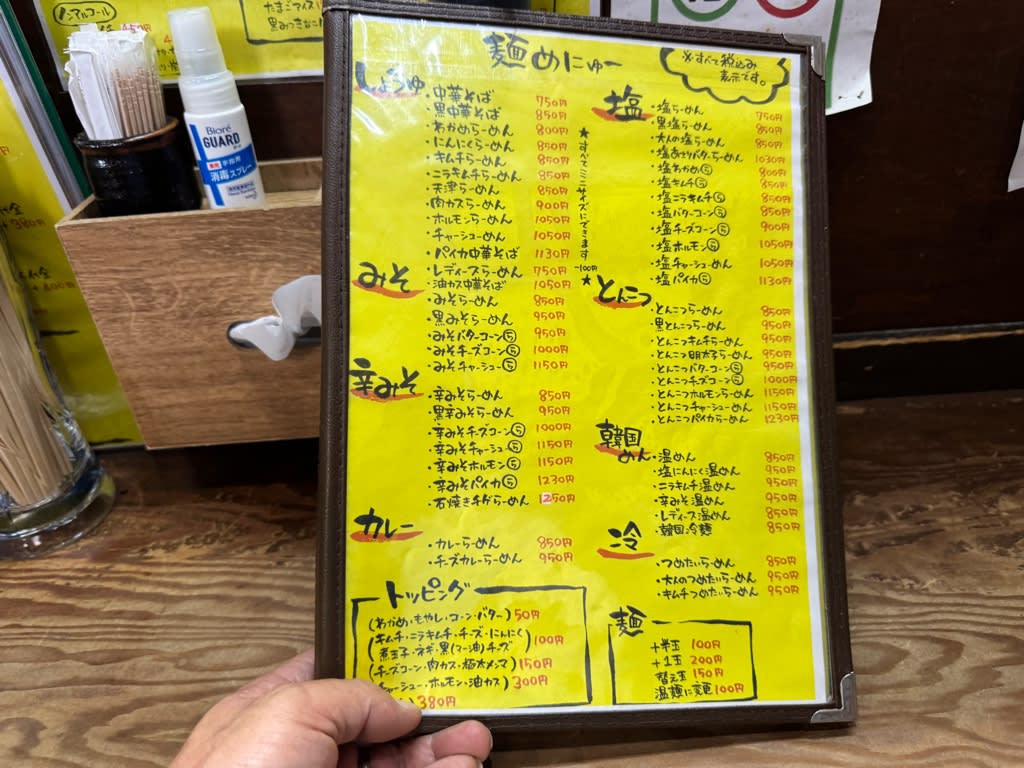 麺めにゅー
※すべて税込み
表示です。
しょうゆ
・中華そば 750円
・黒中華そば 850円
・わかめらーめん 800円
・にんにくらーめん 850円
・キムチらーめん 850円
・ニラキムチらーめん 850円
・天津らーめん 850円
・肉カスらーめん 900円
・ホルモンらーめん 1050円
・チャーシューめん 1050円
・パイカ中華そば 1130円
・レディースらーめん 750円
・油カス中華そば 1050円
★すべてミニサイズにできます -100円★
みそ
・みそらーめん 850円
・黒みそらーめん 950円
・みそバターコーンら 950円
・みそチーズコーンら 1000円
・みそチャーシューら 1150円
辛みそ
・辛みそらーめん 850円
・黒辛みそらーめん 950円
・辛みそチーズコーンら 1000円
・辛みそチャーシューら 1150円
・辛みそホルモンら 1150円
・辛みそパイカら 1230円
・石焼きチゲらーめん 1250円
カレー
・カレーらーめん 850円
・チーズカレーらーめん 950円
トッピング
(わかめ・もやし・コーン・バター) 50円
(キムチ・ニラキムチ・チーズ・にんにく
煮玉子・ネギ・黒(マー油)チーズ) 100円
(チーズコーン・肉カス・極太メンマ) 150円
(チャーシュー・ホルモン・油カス) 300円
380円
塩
・塩らーめん 750円
・黒塩らーめん 850円
・大人の塩らーめん 850円
・塩あさりバターらーめん 1030円
・塩わかめら 800円
・塩キムチら 850円
・塩ニラキムチら 850円
・塩バターコーンら 850円
・塩チーズコーンら 900円
・塩ホルモンら 1050円
・塩チャーシューめん 1050円
・塩パイカら 1130円
とんこつ
・とんこつらーめん 850円
・黒とんこつらーめん 950円
・とんこつキムチらーめん 950円
・とんこつ明太子らーめん 950円
・とんこつバターコーンら 950円
・とんこつチーズコーンら 1000円
・とんこつホルモンらーめん 1150円
・とんこつチャーシューめん 1150円
・とんこつパイカらーめん 1230円
韓国めん
・温めん 850円
・塩にんにく温めん 950円
・ニラキムチ温めん 950円
・辛みそ温めん 950円
・レディース温めん 850円
・韓国冷麺 850円
冷
・つめたいらーめん 850円
・大人のつめたいらーめん 950円
・キムチつめたいらーめん 950円
麺
+半玉 100円
+1玉 200円
替え玉 150円
温麺に変更 100円
ノンアルコール
450円
たまごアイス
Bioré
GUARD
手指用
消毒スプレー
+380円
+400円